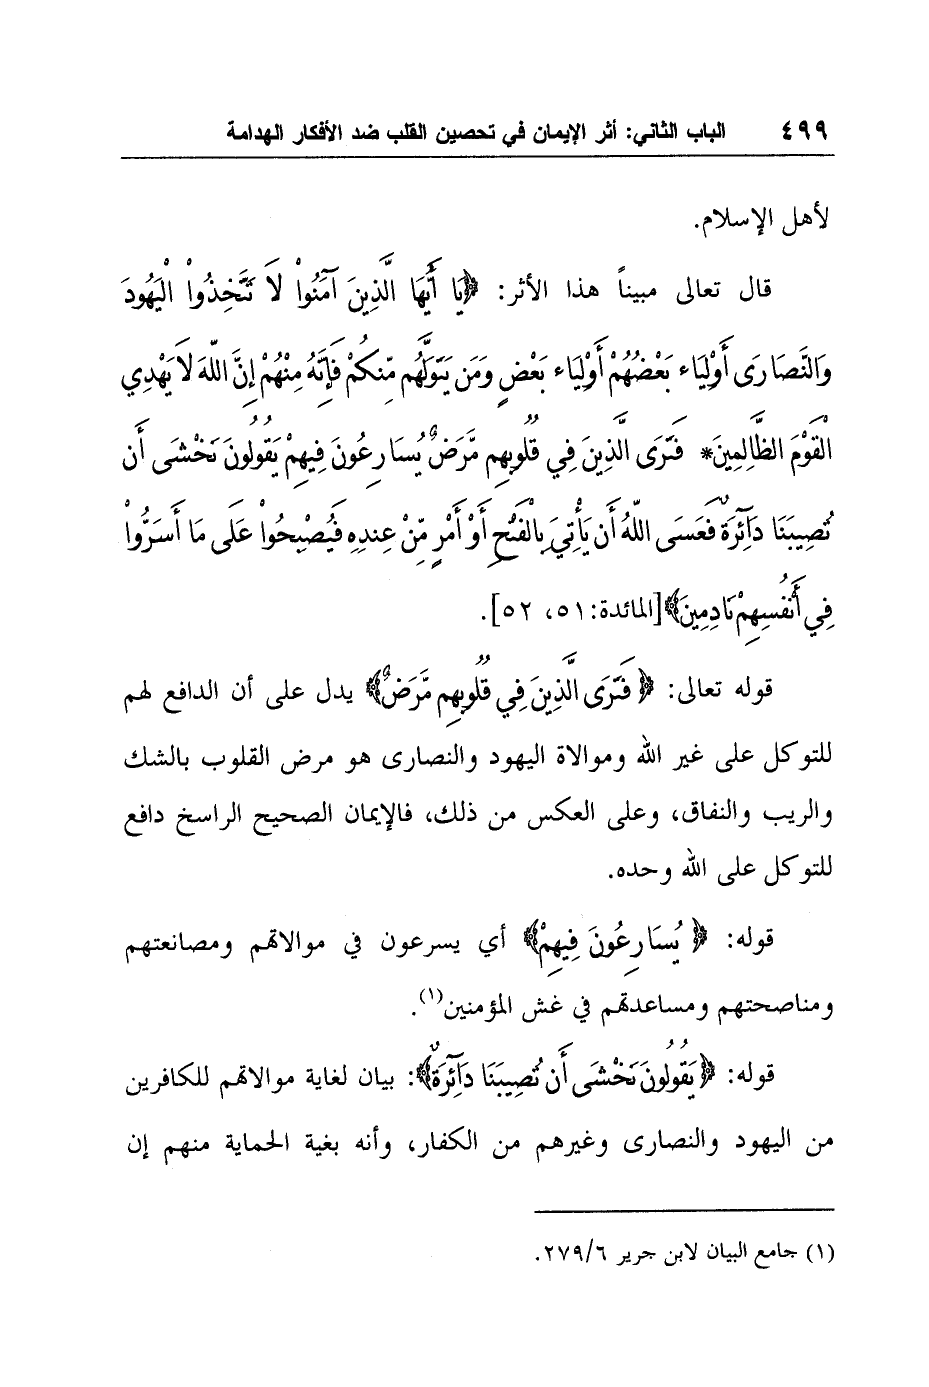 ٤٩٩ الباب الثاني: أثر الإيمان في تحصين القلب ضد الأفكار الهدامة
لأهل الإسلام.
قال تعالى مبيناً هذا الأثر: ﴿يَا أَيُّهَا الَّذِينَ آمَنُواْ لاَ تَتَّخِذُواْ الْيَهُودَ
وَالنَّصَارَى أَوْلِيَاء بَعْضُهُمْ أَوْلِيَاء بَعْضٍ وَمَن يَتَوَلَّهُم مِّنكُمْ فَإِنَّهُ مِنْهُمْ إِنَّ اللّهَ لاَ يَهْدِي
الْقَوْمَ الظَّالِمِينَ* فَتَرَى الَّذِينَ فِي قُلُوبِهِم مَّرَضٌ يُسَارِعُونَ فِيهِمْ يَقُولُونَ نَخْشَى أَن
تُصِيبَنَا دَآئِرَةٌ فَعَسَى اللّهُ أَن يَأْتِيَ بِالْفَتْحِ أَوْ أَمْرٍ مِّنْ عِندِهِ فَيُصْبِحُواْ عَلَى مَا أَسَرُّواْ
فِي أَنْفُسِهِمْ نَادِمِينَ﴾[المائدة: ٥١، ٥٢].
قوله تعالى: ﴿فَتَرَى الَّذِينَ فِي قُلُوبِهِم مَّرَضٌ﴾ يدل على أن الدافع لهم
للتوكل على غير الله وموالاة اليهود والنصارى هو مرض القلوب بالشك
والريب والنفاق، وعلى العكس من ذلك، فالإيمان الصحيح الراسخ دافع
للتوكل على الله وحده.
قوله: ﴿يُسَارِعُونَ فِيهِمْ﴾ أي يسرعون في موالاتهم ومصانعتهم
ومناصحتهم ومساعدتهم في غش المؤمنين(١).
قوله: ﴿يَقُولُونَ نَخْشَى أَن تُصِيبَنَا دَآئِرَةٌ﴾: بيان لغاية موالاتهم للكافرين
من اليهود والنصارى وغيرهم من الكفار، وأنه بغية الحماية منهم إن
(١) جامع البيان لابن جرير ٢٧٩/٦.